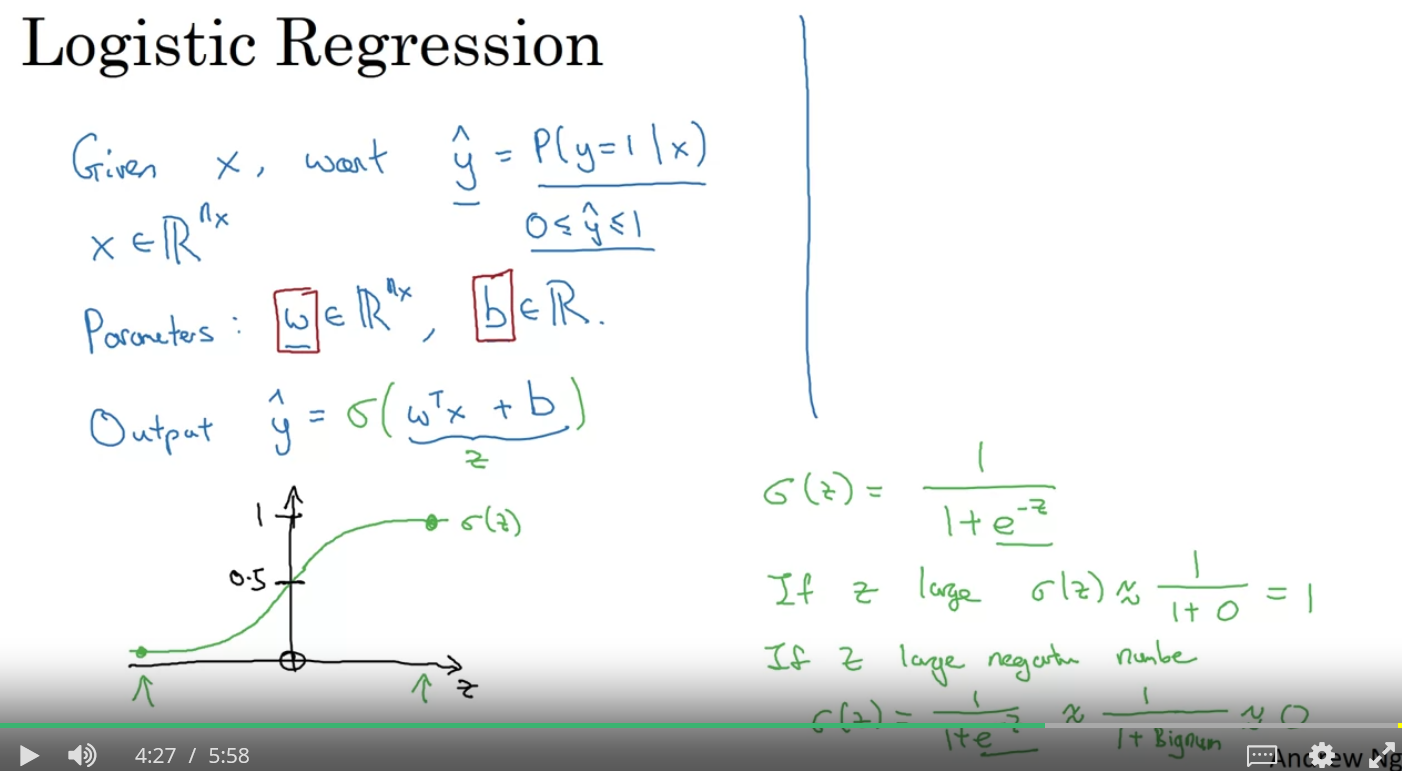 Logistic Regression
Given x, want ŷ = P(y=1|x)
x ∈ ℝ^nx
0 ≤ ŷ ≤ 1
Parameters: w ∈ ℝ^nx, b ∈ ℝ.
Output ŷ = σ(w^T x + b)
z
1
σ(z)
0.5
z
σ(z) = 1 / (1 + e^-z)
If z large σ(z) ≈ 1 / (1 + 0) = 1
If z large negative number
σ(z) = 1 / (1 + e^-z) ≈ 1 / (1 + Bignum) ≈ 0
4:27 / 5:58
Andrew Ng